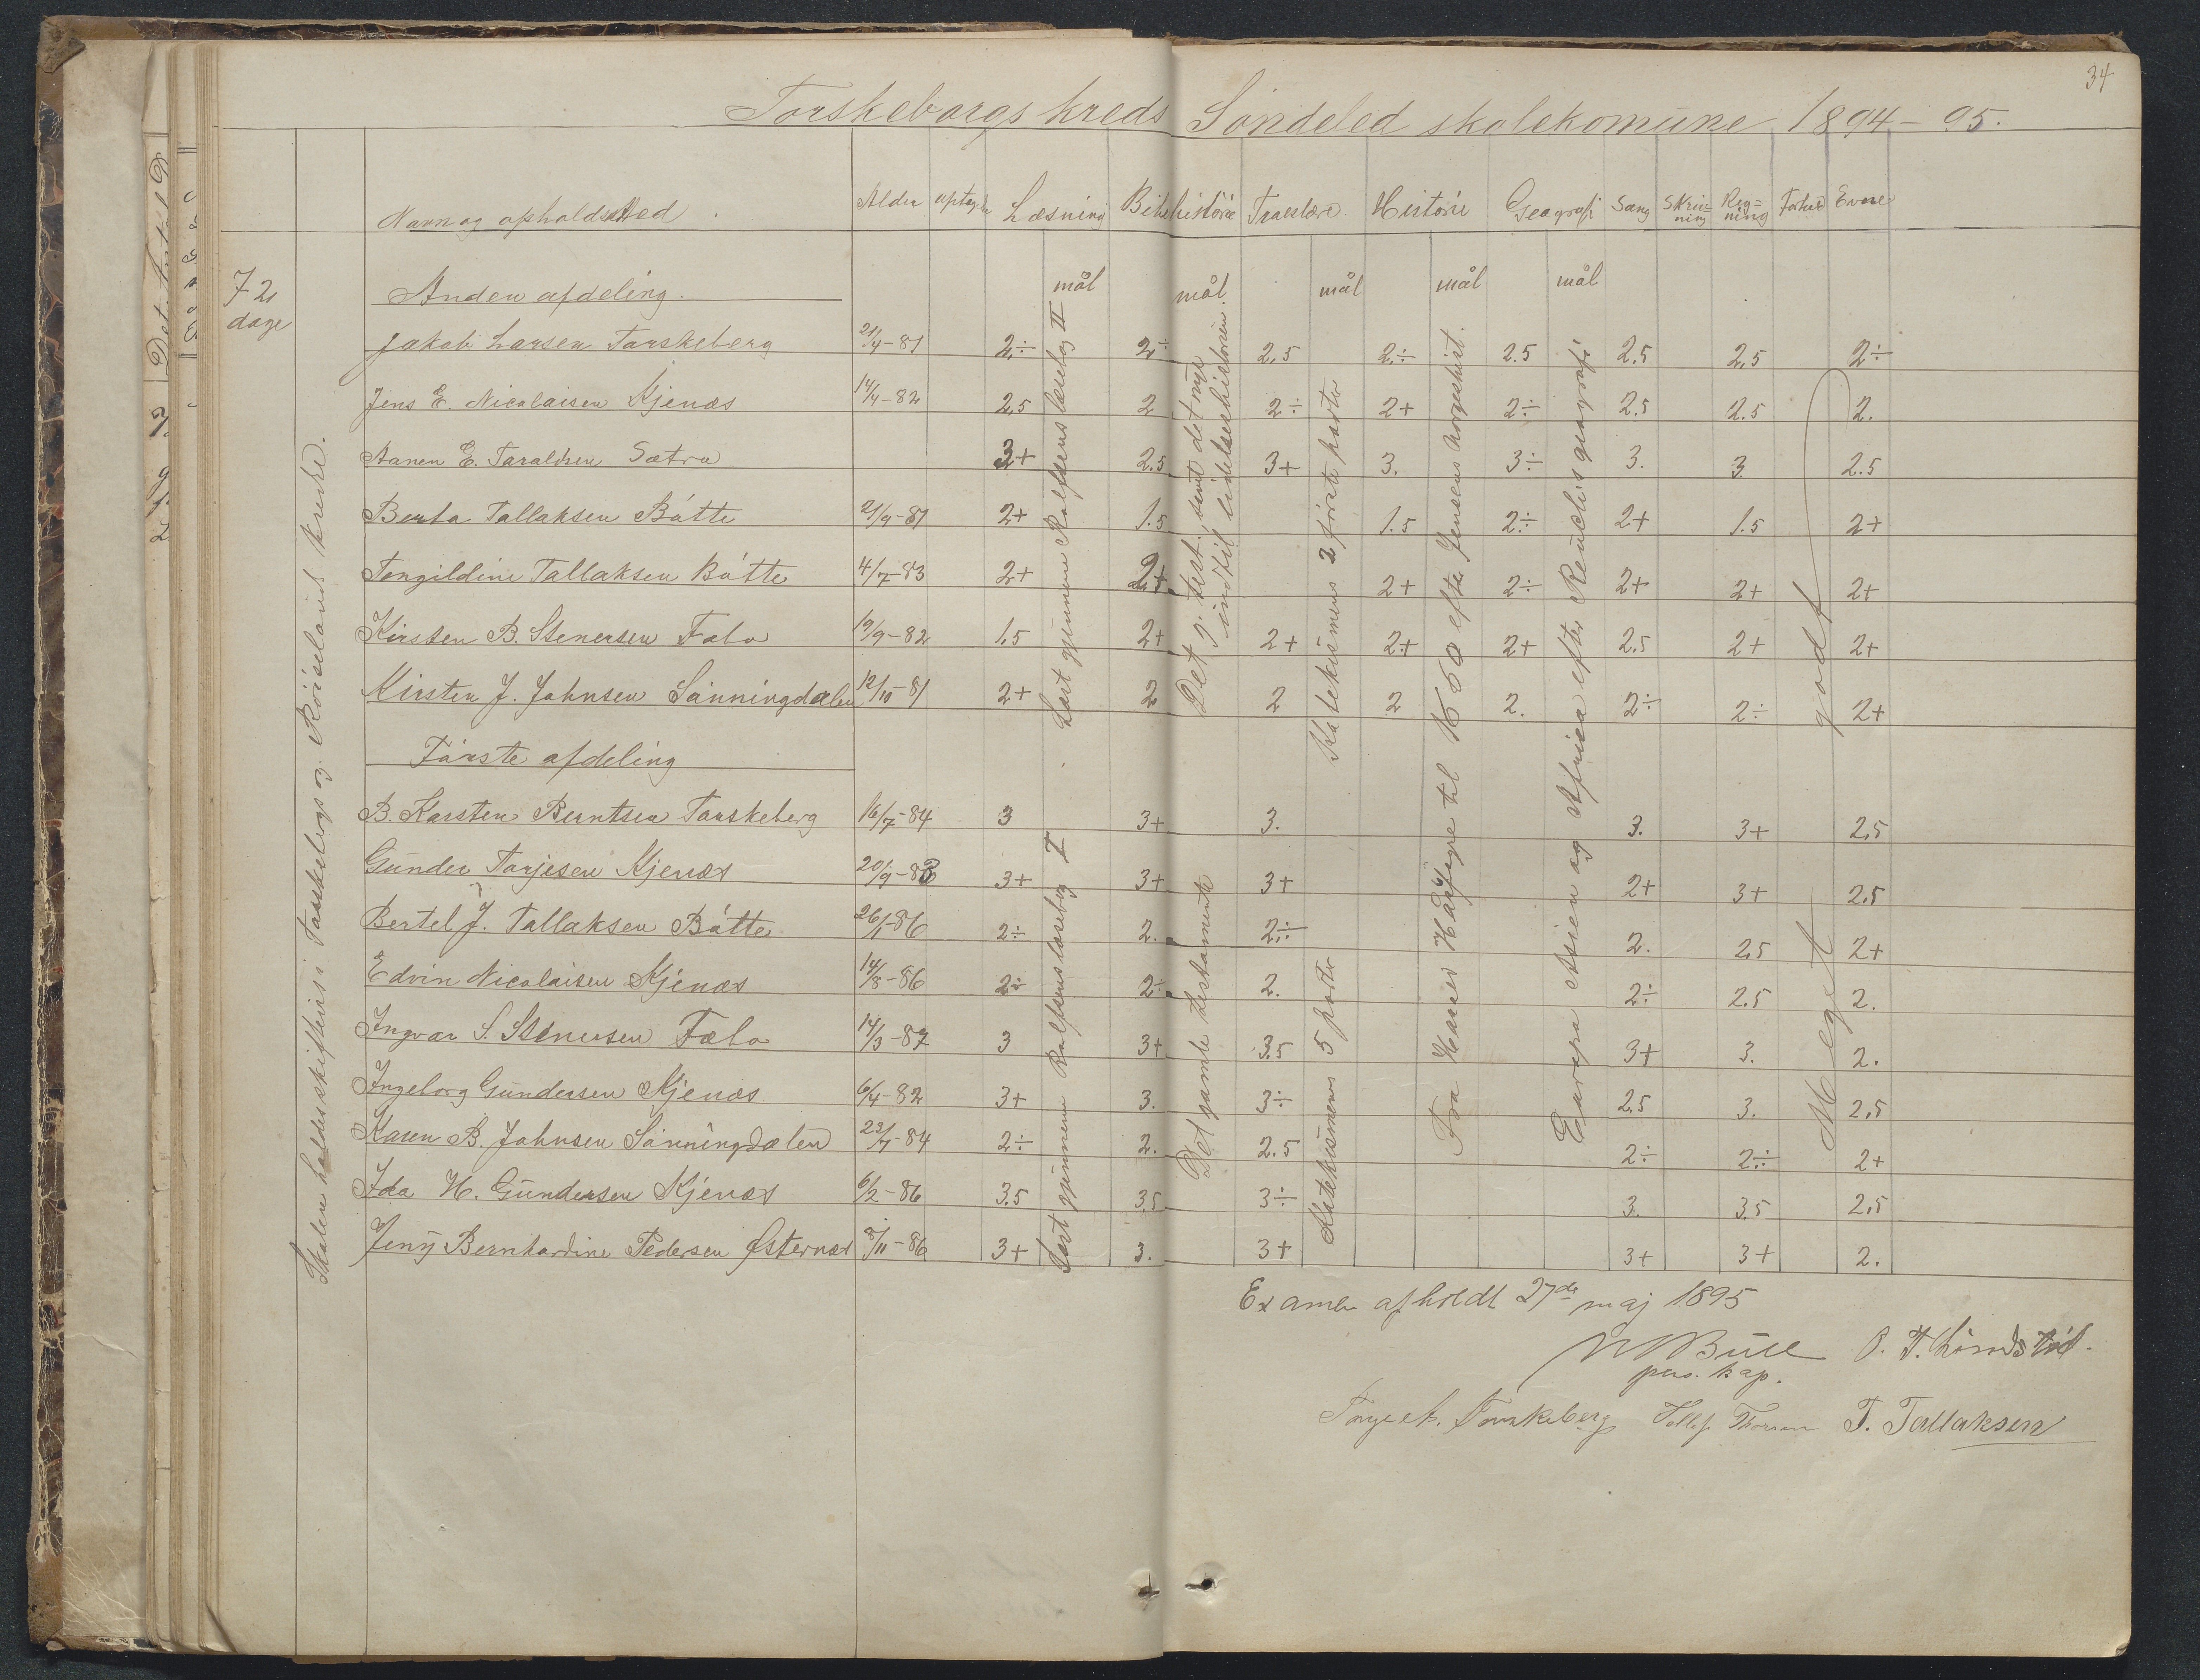 34
Torskebergs kreds Söndeled skolekomune 1894-95.
Navn og opholdssted. Alder optagelse Læsning Bibelhistórie Troeslære Histórie Geografi Sang Skriv=ning Reg=ning Forhold Evne
72 dage
Anden afdeling. mål mål mål mål mål
Jakob Larsen Torskeberg 21/4-81 2÷ 2÷ 2.5 2÷ 2.5 2.5 2.5 2÷
Jens E. Nicolaisen Kjenæs 14/4-82 2.5 2 2÷ 2+ 2÷ 2.5 2.5 2.
Aanen E. Taraldsen Sætra 3+ 2.5 3+ 3. 3÷ 3. 3. 2.5
Berta Tallaksen Båtte 21/9-81 2+ 1.5 1.5 2÷ 2+ 1.5 2+
Tengildine Tallaksen Båtte 4/7-83 2+ 2+ 2+ 2÷ 2+ 2+ 2+
Kirsten B. Stenersen Fæbo 19/9-82 1.5 2+ 2+ 2+ 2+ 2.5 2+ 2+
Kirsten J. Johnsen Sånningdalen 12/10-81 2+ 2 2 2 2. 2÷ 2÷ 2+
Förste afdeling
B. Karsten Berntsen Torskeberg 16/7-84 3 3+ 3. 3. 3+ 2.5
Gunder Tarjesen Kjenæs 20/9-83 3+ 3+ 3+ 2+ 3+ 2.5
Bertel J. Tallaksen Båtte 26/1-86 2÷ 2. 2÷ 2. 2.5 2+
Edvin Nicolaisen Kjenæs 14/8-86 2÷ 2÷ 2. 2÷ 2.5 2.
Ingvar S. Stenersen Fæbo 14/3-87 3 3+ 3.5 3+ 3. 2.
Ingeborg Gundersen Kjenæs 6/4-82 3+ 3. 3÷ 2.5 3. 2.5
Karen B. Johnsen Sånningdalen 23/7-84 2÷ 2. 2.5 2÷ 2÷ 2+
Ida H. Gundersen Kjenæs 6/2-86 3.5 3.5 3÷ 3. 3.5 2.5
Jeny Bernhardine Pedersen Østernæs 8/11-86 3+ 3. 3+ 3+ 3+ 2.
Skolen holdes skiftevis i Torskebergs og Röiselands kreds.
Læst gjennem Rolfsens læsebog II
Læst gjennem Rolfsens læsebog I
Det g. test. samt det nye indtil lidelseshistorien
Det gamle testamente
Katekismens 2 förste parter
Katekismens 5 parter
Fra Harald Hårfagre til 1660 efter Jensens Norgeshist.
Europa Asien og Afrika efter Reuchs geografi
godt
Meget
Examen afholdt 27de maj 1895
Bull
pers. kap.
Torskeberg T. Tallaksen